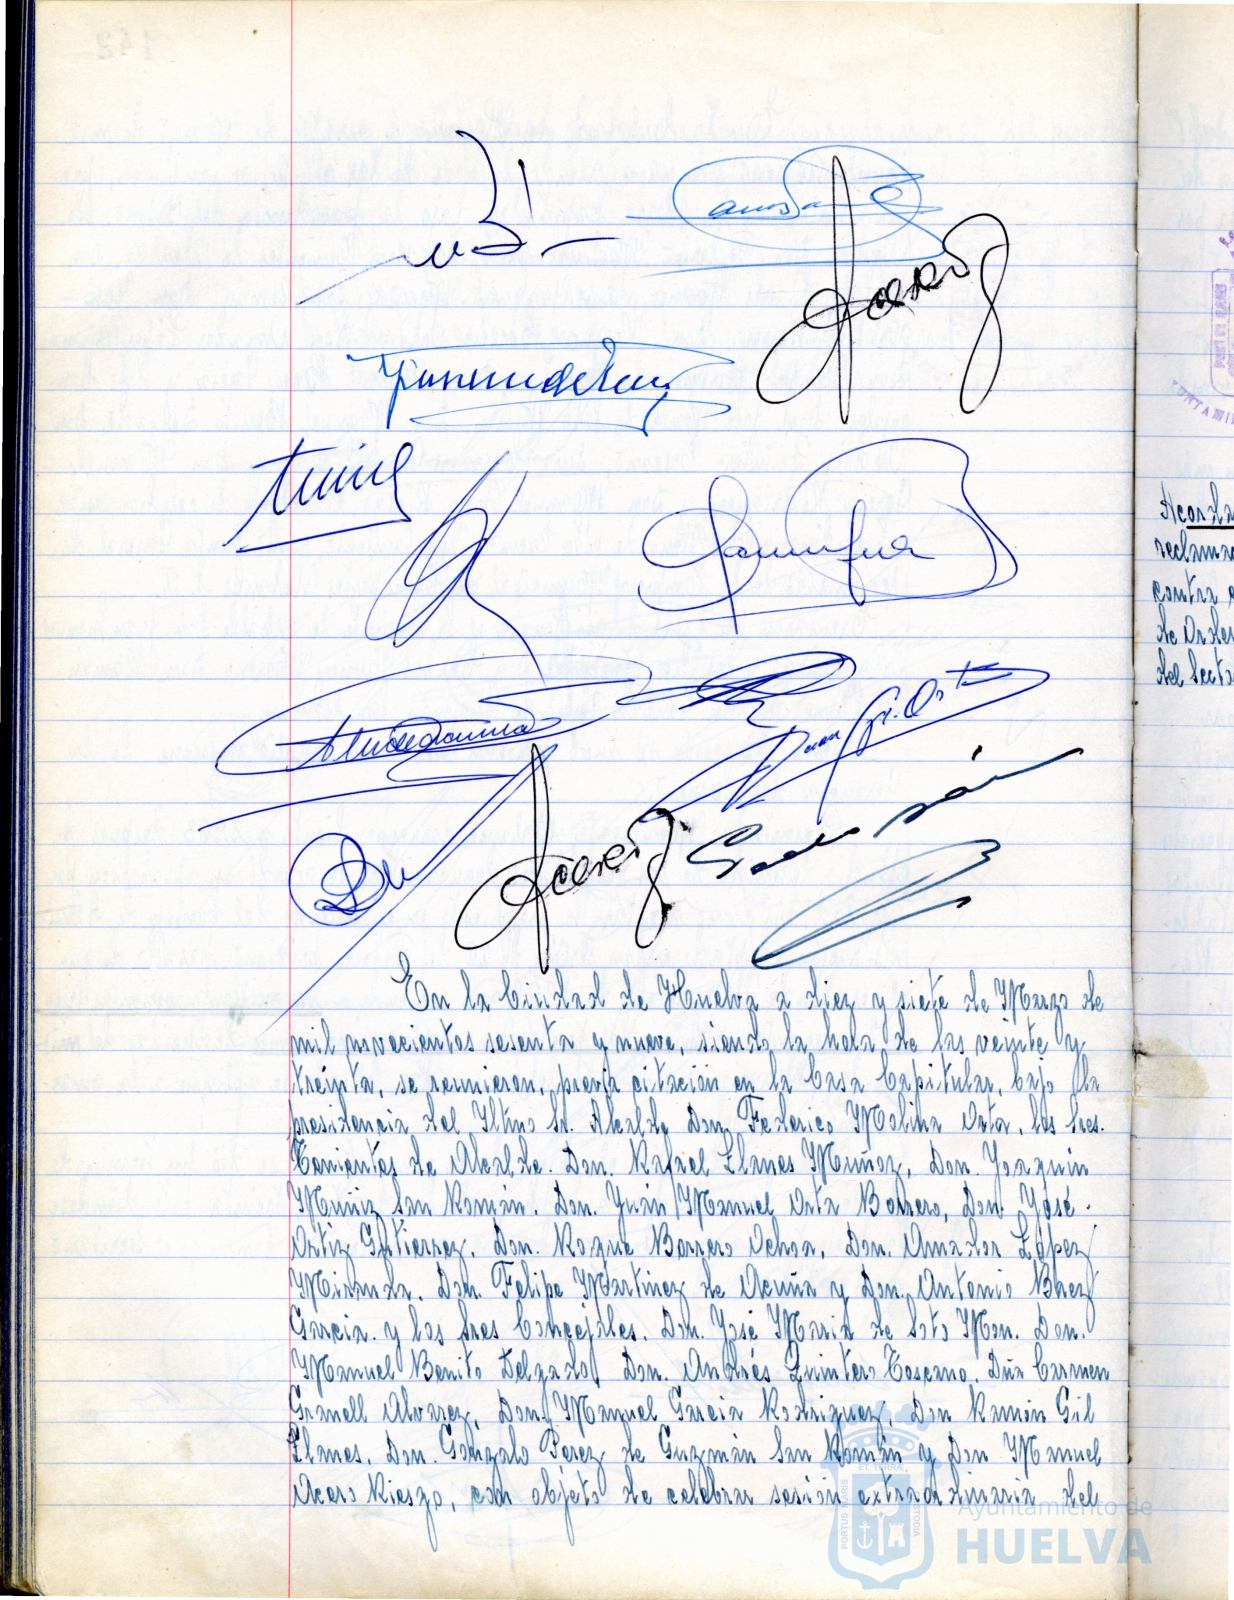 En la Ciudad de Huelva a diez y siete de Marzo de
mil novecientos sesenta y nueve, siendo la hora de las veinte y
treinta, se reunieron, previa citación en la Casa Capitular, bajo la
presidencia del Iltmo Sr. Alcalde Don Federico Molina Orta, los Sres.
Tenientes de Alcalde. Don. Rafael Llanes Muñoz, Don. Joaquín
Muñiz San Román. Don. Juan Manuel Orta Borrero, Don José
Ortiz Gutierrez, Don. Roque Barrero Ochoa, Don. Amador López
Miranda, Don. Felipe Martínez de Acuña y Don. Antonio Baez
García. y los Sres Concejales, Don. José María de Soto Mon. Don.
Manuel Benito Delgado, Don. Andrés Quintero Toscano, Dña Carmen
Granell Alvarez, Don Manuel García Rodriguez, Don Ramón Gil
Llanes, Don. Gonzalo Perez de Guzmán San Román y Don Manuel
Acero Riesgo, con objeto de celebrar sesión extraordinaria del
Ayuntamiento de
HUELVA